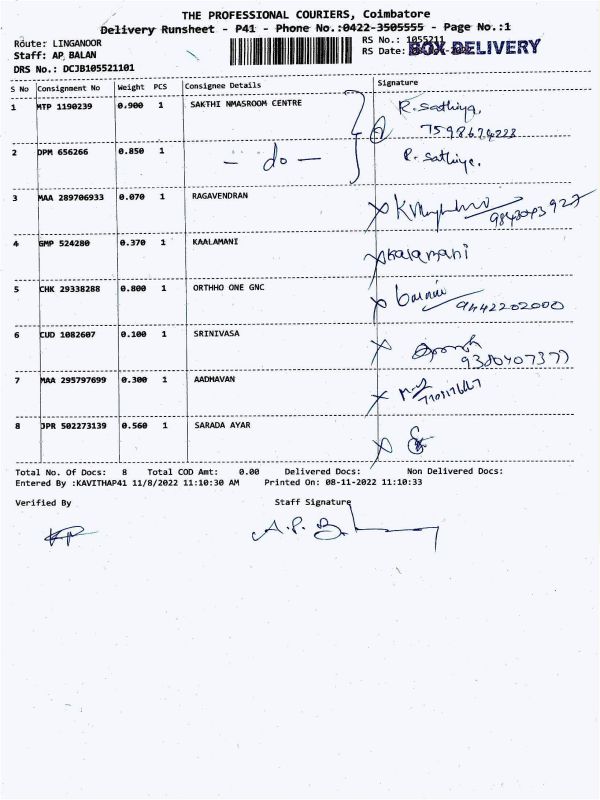 THE PROFESSIONAL COURIERS, Coimbatore
Delivery Runsheet - P41 - Phone No.:0422-3505555 - Page No.:1
Route: LINGANOOR
RS No.: 1055211
Staff: AP BALAN
RS Date:
BOX DELIVERY
DRS No.: DCJB105521101
S No Consignment No Weight PCS Consignee Details Signature
1 MTP 1190239 0.900 1 SAKTHI NMASROOM CENTRE R. Sathiya,
7598674223
2 DPM 656266 0.850 1 - do - R. Sathiya.
3 MAA 289706933 0.070 1 RAGAVENDRAN
4 GMP 524280 0.370 1 KAALAMANI Kalamani
5 CHK 29338288 0.800 1 ORTHHO ONE GNC
9442202000
6 CUD 1082607 0.100 1 SRINIVASA
9380407377
7 MAA 295797699 0.300 1 AADHAVAN
8 JPR 502273139 0.560 1 SARADA AYAR
Total No. Of Docs: 8 Total COD Amt: 0.00 Delivered Docs: Non Delivered Docs:
Entered By :KAVITHAP41 11/8/2022 11:10:30 AM Printed On: 08-11-2022 11:10:33
Verified By Staff Signature
A.P. B